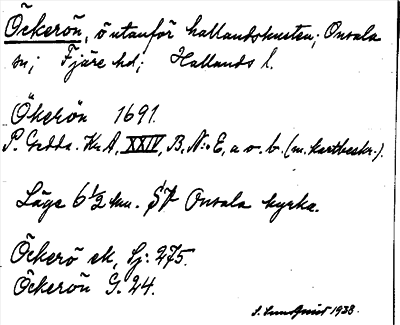 Öckerön, ö utanför hallandskusten; Onsala
sn; Fjäre hd; Hallands l.
Ökerön 1691.
P. Gedda. Kr. A, XXIV, B. N:o E, a o. b. (m. kartbeskr.).
Läge 6½ km. SV Onsala kyrka.
Öckerö ek, Sj: 275.
Öckerön G. 24.
S. Lundqvist 1938.